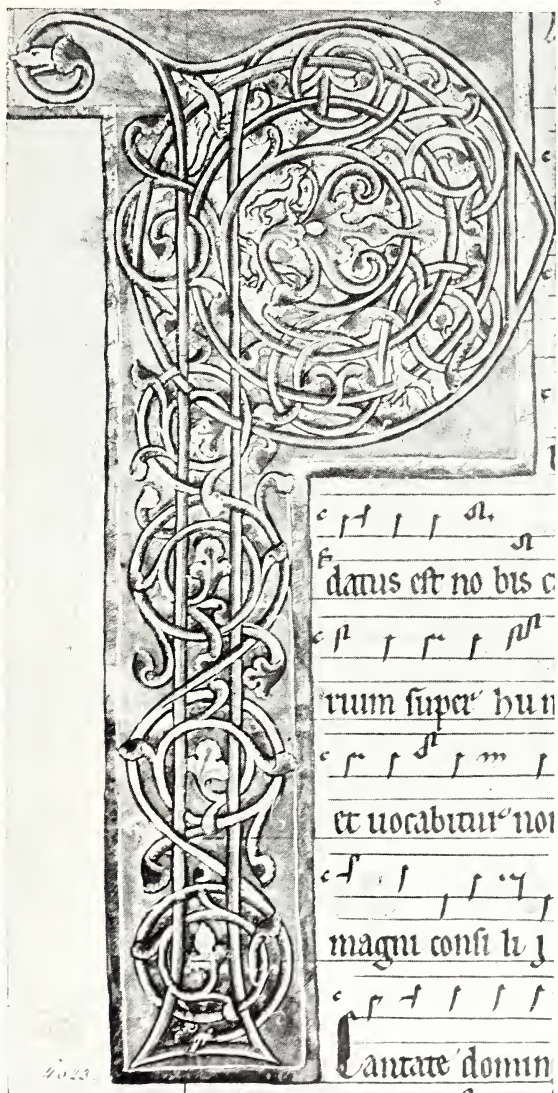 P
datus est no bis
rium super hu
et uocabitur no
magni consi li
Cantate domin
4023